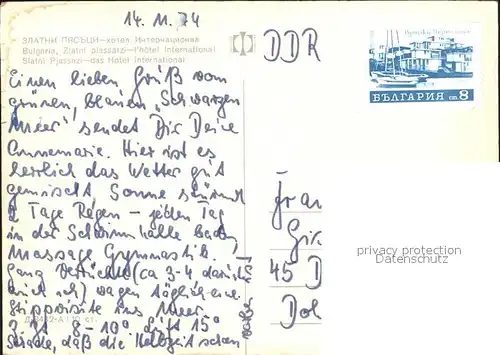 14. 11. 74
ЗЛАТНИ ПЯСЪЦИ—хотел Интернационал
Bulgaria, Zlatni piassatzi—l'hôtel International
Slatni Pjassazi—das Hotel International
DDR
БЪЛГАРИЯ ст. 8
Einen lieben Gruß vom
grünen, blauen „Schwarzen
Meer" sendet Dir Deine
Annemarie. Hier ist es
herrlich das Wetter gut
gemischt Sonne
2 Tage Regen – jeden Tag
in der Schwimmhalle baden
Massage Gymnastik.
Ganz (ca 3-4
wagen täglich eine
Stippvisite ins Meer.
8-10° Luft 15°
Schade, daß die Halbzeit schon
Fra
Gis
45 D
Dol
privacy protection
Datenschutz